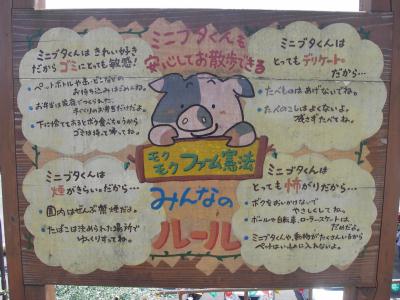 ミニブタくんも
安心してお散歩できる
ミニブタくんは きれい好き
だから ゴミにとっても 敏感!
• ペットボトルや缶・ビンなどの
お持ち込みはごめんね。
• お弁当は家庭でつくられた、
手づくりのお弁当だけだよ。
• 下に捨ててあるとボク食べちゃうから
ゴミは持って帰ってね。
ミニブタくんは
とってもデリケート
だから…
• たべものはあげないでね。
• たべのこしはよくないよ。
残さずたべてね。
モクモク ファーム憲法
みんなの
ルール
ミニブタくんは
煙がきらいだから…
• 園内はぜんぶ禁煙だよ。
• たばこは決められた場所で
ゆっくりすってね。
ミニブタくんは
とっても怖がりだから…
• ボクをおいかけないで
やさしくしてね。
• ボールや自転車、ローラースケートは
だめだよ。
• ミニブタくんや、動物がたくさんいるから
ペットはいっしょに入れないよ。